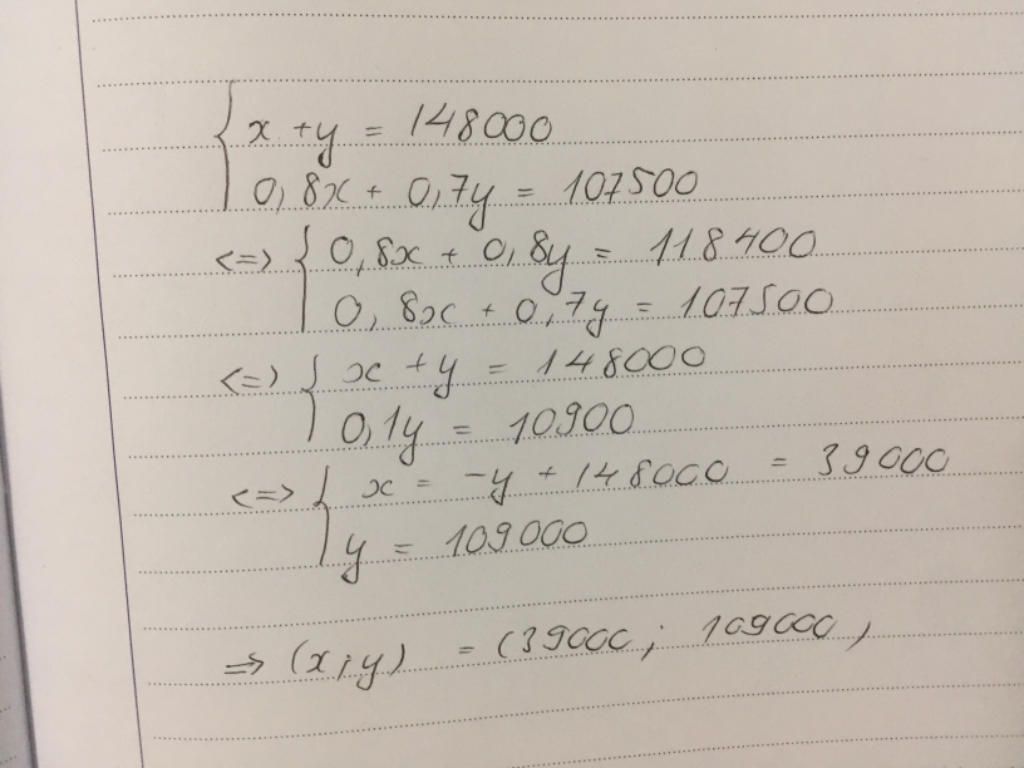 { x + y = 148000
0,8x + 0,7y = 107500
<=> { 0,8x + 0,8y = 118400
0,8x + 0,7y = 107500
<=> { x + y = 148000
0,1y = 10900
<=> { x = -y + 148000 = 39000
y = 109000
=> (x;y) = (39000; 109000)